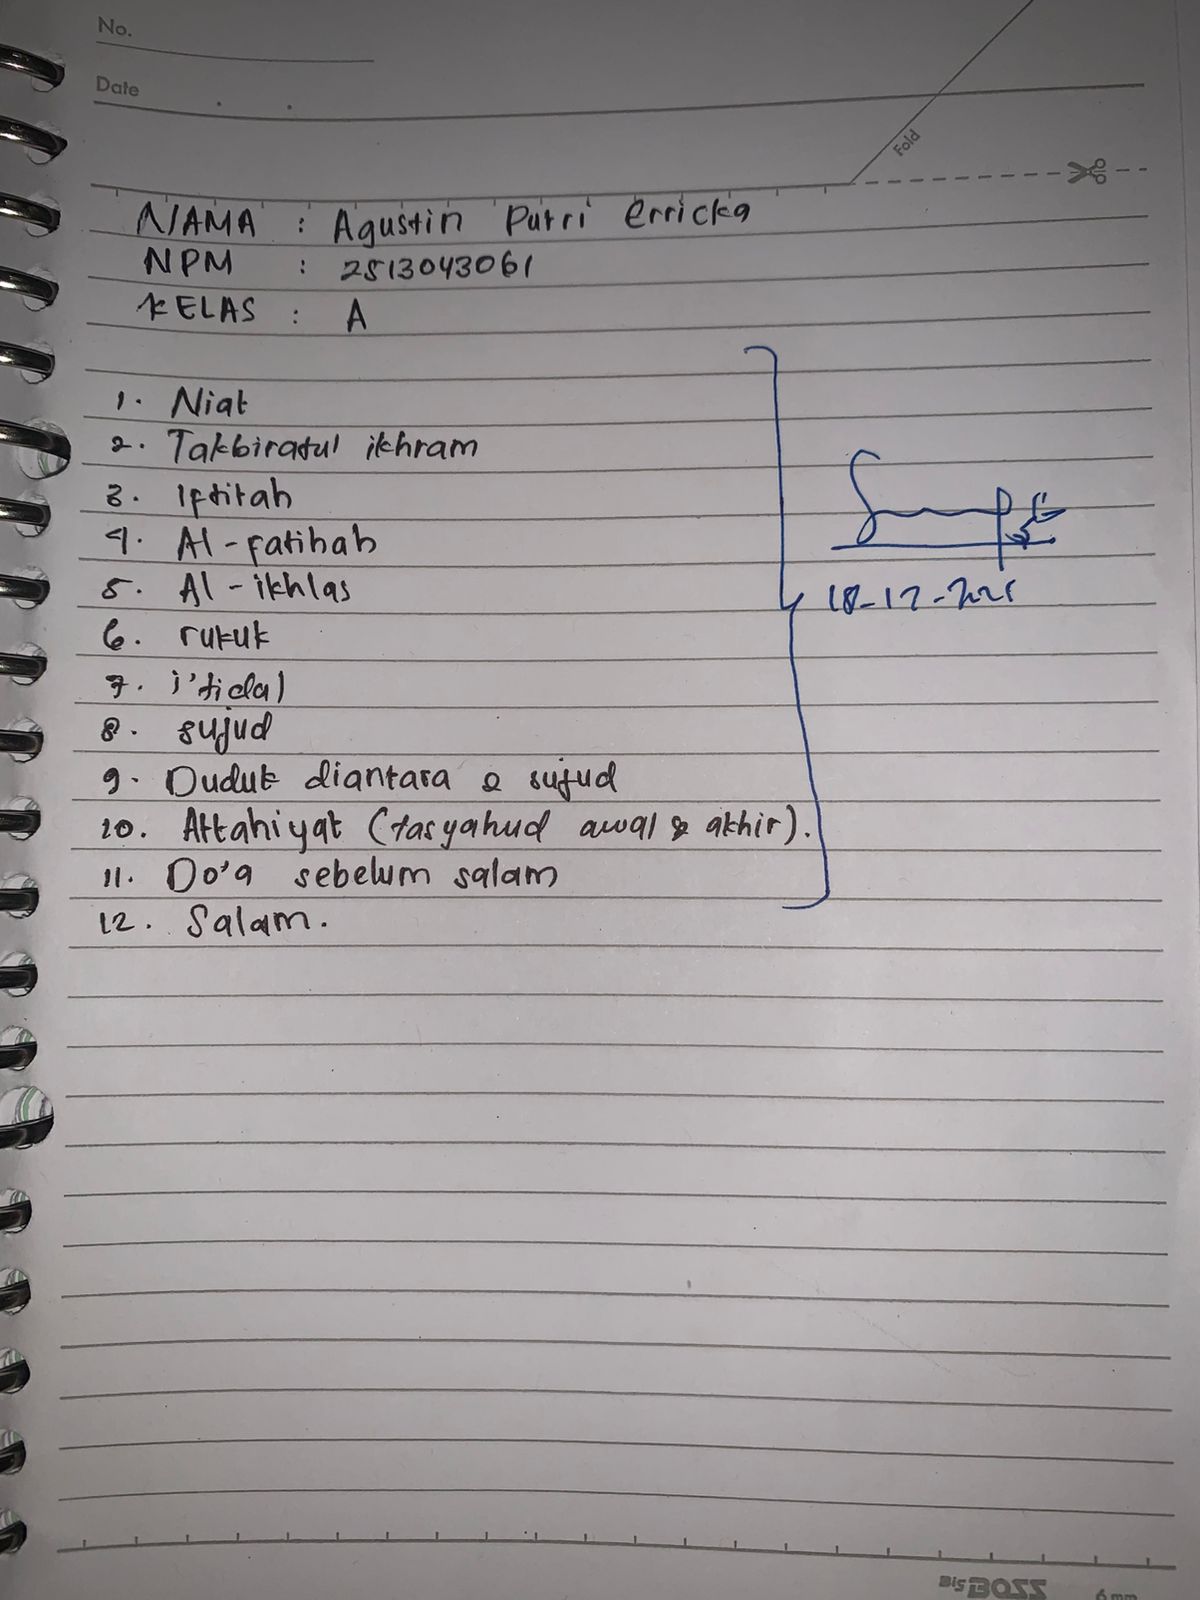 No.
Date
Fold
NAMA : Agustin Putri Erricka
NPM : 2513043061
KELAS : A
1. Niat
2. Takbiratul ikhram
3. Iftitah
4. Al-fatihah
5. Al-ikhlas
6. rukuk
7. i'tidal
8. sujud
9. Duduk diantara 2 sujud
10. Attahiyat (tasyahud awal & akhir).
11. Do'a sebelum salam
12. Salam.
18-12-2025
Big BOSS
6 mm